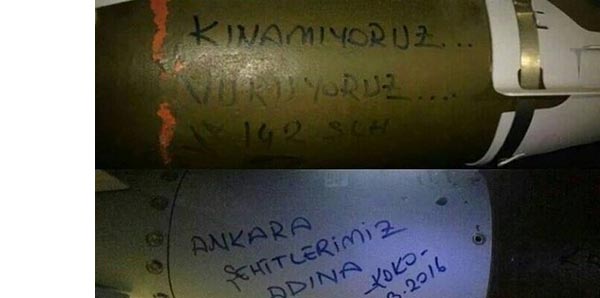 KINAMIYORUZ...
VURUYORUZ....
142
ANKARA
ŞEHİTLERİMİZ
ADINA
.2016